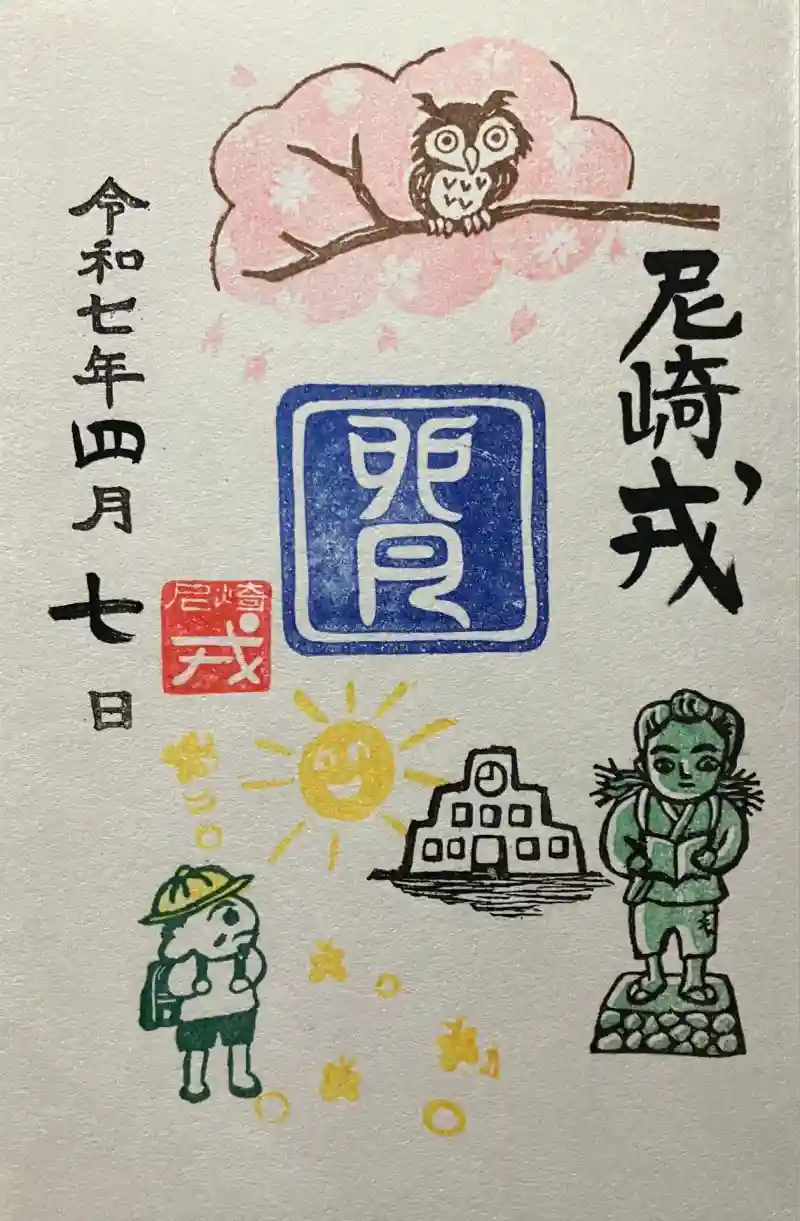 尼崎戎
令和七年四月七日
尼崎
戎